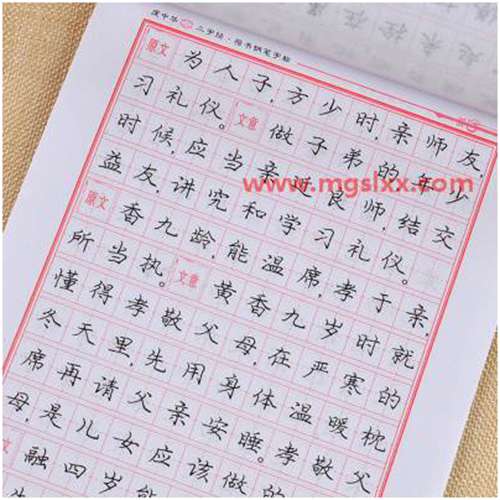 庞中华 三字经·楷书钢笔字帖
原文 为人子,方少时,亲师友,
习礼仪。 文意 做子弟的年少
时候,应当亲近良师,结交
益友,讲究和学习礼仪。
原文 香九龄,能温席,孝于亲,
所当执。 文意 黄香九岁时就
懂得孝敬父母,在严寒的
冬天里,先用身体温暖枕
席再请父亲安睡。孝敬父
母,是儿女应该做的
文 融四岁能
www.mgslxx.com